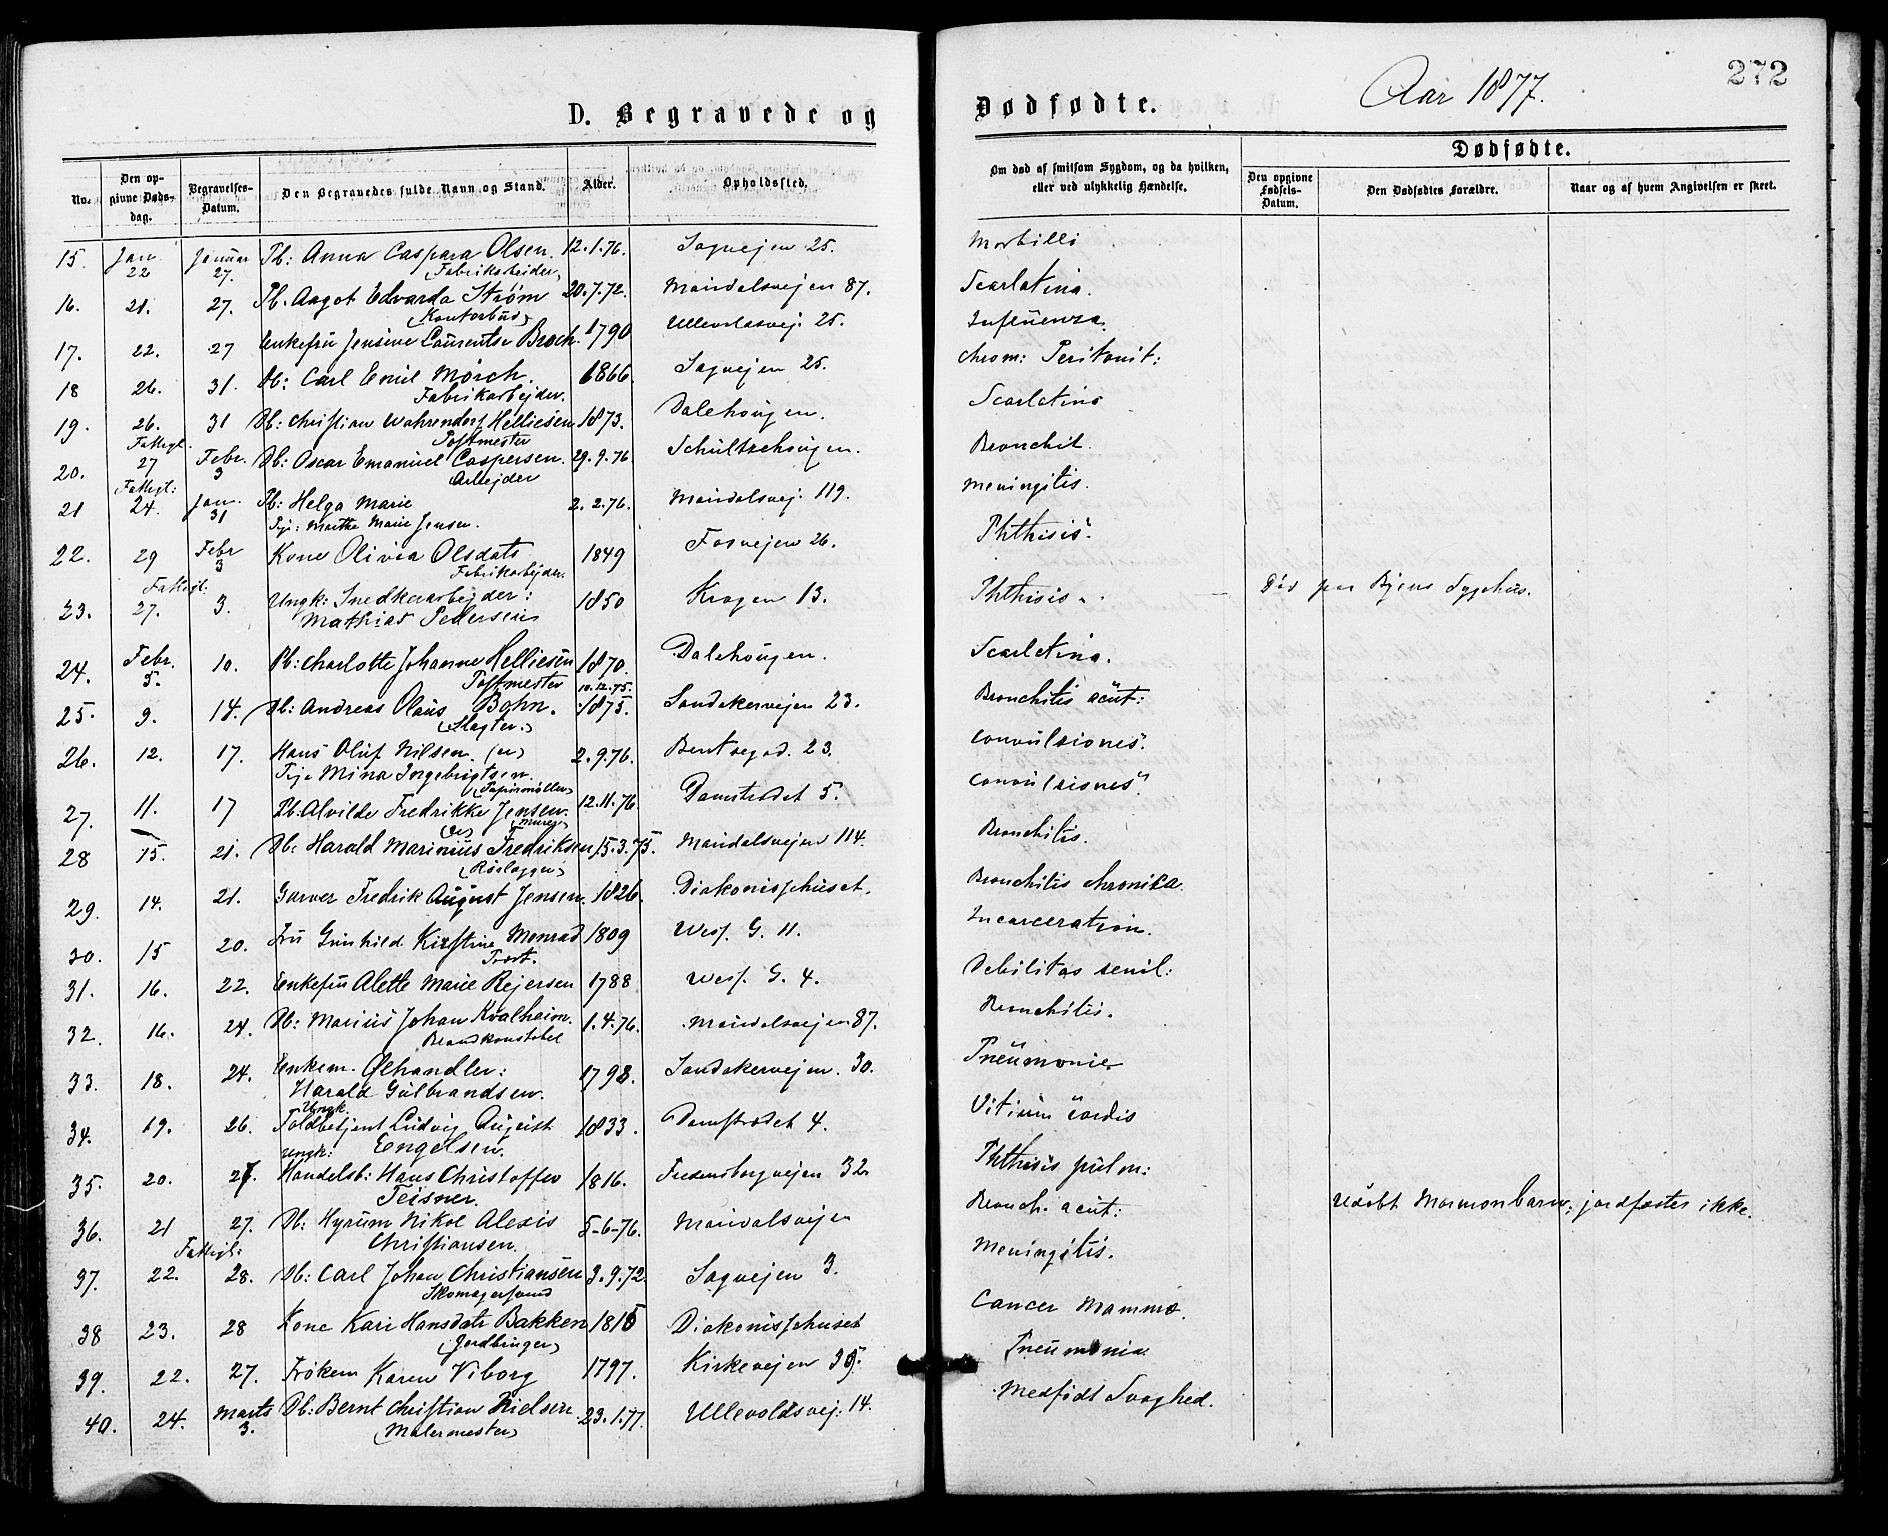 272
Aar 1877.
D. Begravede og Dødfødte.
No. Den opgivne Dødsdag. Begravelses-Datum. Den Begravedes fulde Navn og Stand. Alder. Opholdssted. Om død af smitsom Sygdom, og da hvilken, eller ved ulykkelig Hændelse. Dødfødte. Den opgivne Fødsels-Datum. Den Dødfødtes Forældre. Naar og af hvem Angivelsen er skeet.
15. Jan. 22 Januar 27. Pb: Anna Caspara Olsen. (Fabrikarbeider) 12.1.76. Sagvejen 25. Morbilli
16. 21. 27. Pb. Aagot Edvarda Strøm (Kontorbud) 20.7.72. Maridalsvejen 87. Scarlatina.
17. 22. 27 Enkefru Jensine Laurentse Broch. 1790 Ullevolasvej. 25. Influenza.
18 26. 31. Db: Carl Emil Mörch. Fabrikarbejder. 1866. Sagvejen 25. chron: Peritonit:
19. 26. 31 Db: Christian Wahrendorf Helliesen Postmester 1873. Dalehougen. Scarlatina
20. Fattigl. 27 Febr. 3 Db: Oscar Emanuel Caspersen. Arbejder 29.9.76 Schultzehougen. Bronchit.
21 Fattigl: 24. Jan. 31 Pb: Helga Marie Pige: Marthe Marie Jensen. 2.2.76. Maridalsvej. 119. Meningitis.
22. 29 Febr 3 Kone Olivia Olsdatr Fabrikarbejder. 1849 Fosvejen 26. Phthisis.
23. Fattigl: 27. 3. Ungk: Snedkerarbejder: Mathias Pedersen 1850 Krogen 13. Phthisis. Död paa Byens Sygehus.
24. Febr. 5. 10. Pb: Charlotte Johanne Helliesen Postmester 1870. Dalehougen. Scarlatina.
25. 9. 14. Db: Andreas Olaus Bohn. (Slagter.) 10.12.75. 1875. Sandakervejen 23. Bronchitis acut:
26. 12. 17. Hans Oluf Nilsen. (u) Pige Mina Ingebrigtsen. (Papirmöller) 2.9.76. Bentsegad. 23. Convulsiones.
27. 11. 17 Pb. Alvilde Fredrikke Jensen. (u) (Murer) 12.11.76. Damstrædet 5. Convulsiones.
28 15. 21. Db: Harald Marinius Fredriksen (Rørlægger) 15.3.75. Maridalsvejen 114. Bronchitis.
29. 14. 21. Garver Fredrik August Jensen. 1826. Diakonissehuset. Bronchitis chronica.
30. 15 20. Fru Gunhild Kirstine Monrad Provst. 1809 Wess. G. 11. Incarceration.
31. 16. 22. Enkefru Alette Marie Rejersen 1788 Wess. G. 4. Debilitas senil:
32. 16. 24. Db: Marius Johan Kvalheim. Brandkonstabel 1.4.76. Maridalsvejen 87. Bronchitis.
33. 18. 24. Enkem. Ølhandler: Harald Gulbrandsen. 1798. Sandakervejen. 30. Pneumonie
34. 19. 26. Ungk. Toldbetjent Ludvig August Engelsen. 1833. Damstrædet 4. Vitium cordis
35. 20. 27. Ungk: Handelsb: Hans Christoffer Teisner. 1816. Fredensborgvejen 32 Phthisis pulm:
36. 21 27. Db: Hyrum Nikol Alexis Christiansen. 5-6-76. Maridalsvejen Bronch. acut: Udöbt Mormonbarn; jordfæstes ikke.
37. Fattigl: 22. 28. Db: Carl Johan Christiansen Skomagersvend 3.9.72. Sagvejen 3. Meningitis.
38 23. 28 Kone Kari Hansdatr Bakken (Jordbruger) 1815 Diakonissehuset Cancer Mamma.
39. 22. 27. Fröken Karen Viborg 1797. Kirkevejen 35. Pneumonia
40. 24. Marts 3. Db: Bernt Christian Nielsen (Malermester) 23.1.77. Ullevoldsvej: 14. Medfödt Svaghed.